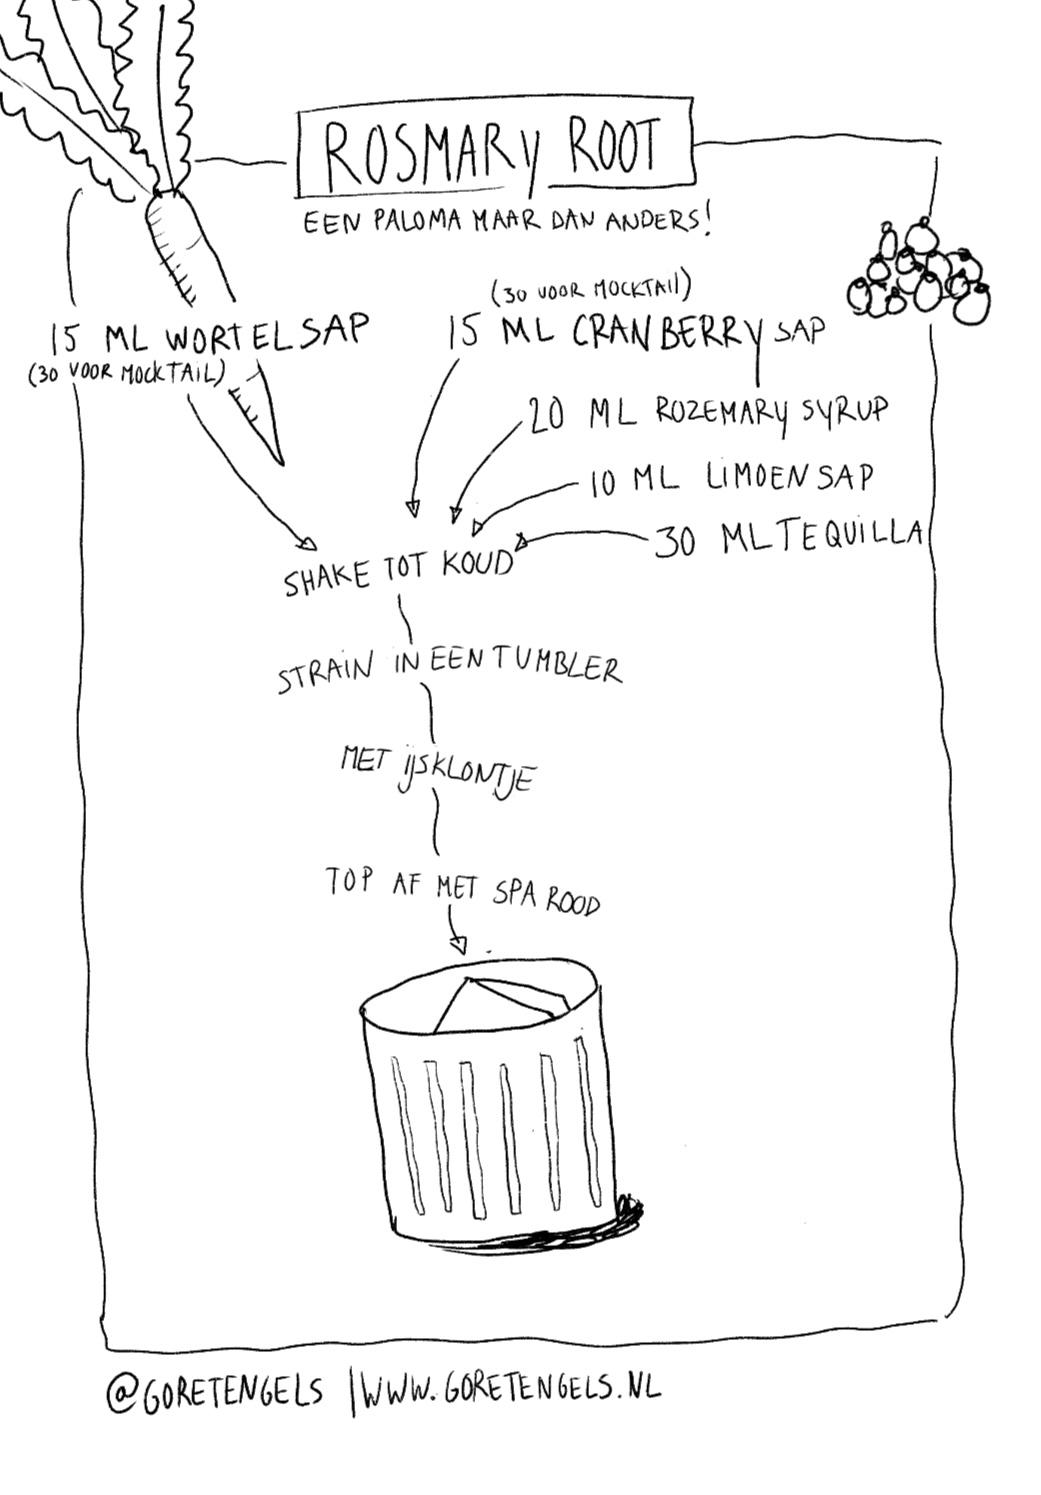 ROSMARY ROOT
EEN PALOMA MAAR DAN ANDERS!
15 ML WORTELSAP
(30 VOOR MOCKTAIL)
(30 VOOR MOCKTAIL)
15 ML CRANBERRY SAP
20 ML ROZEMARY SYRUP
10 ML LIMOENSAP
30 ML TEQUILLA
SHAKE TOT KOUD
STRAIN IN EEN TUMBLER
MET IJSKLONTJE
TOP AF MET SPA ROOD
@GORETENGELS | WWW.GORETENGELS.NL